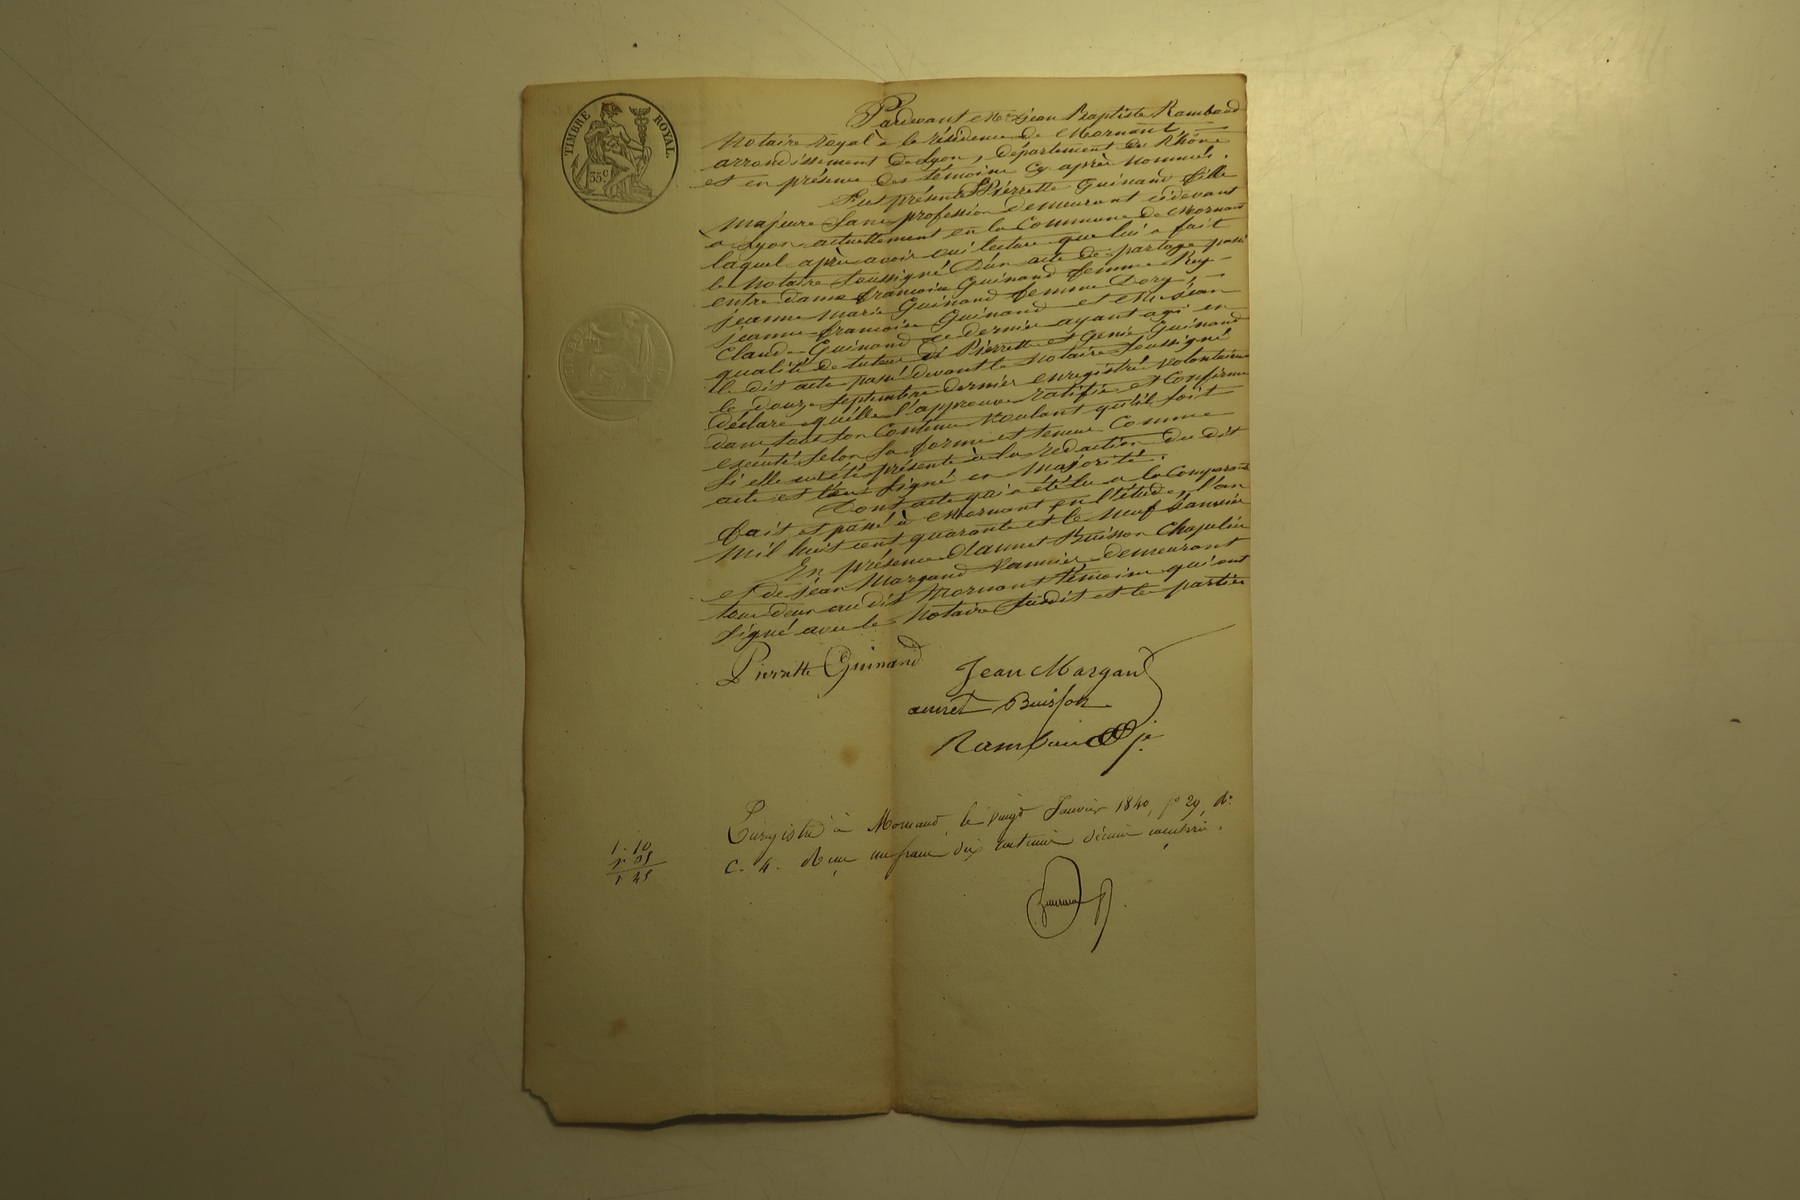 TIMBRE ROYAL.
35 c
Pardevant Me Jean Baptiste Rambaud
Notaire royal à la résidence de Mornant
arrondissement de Lyon, département du Rhône
et en présence des témoins cy après nommés.
Fut présente Pierrette Guinand fille
majeure sans profession demeurant cidevant
a Lyon actuellement en la Commune de Mornant
laquel après avoir oui lecture que lui a fait
le Notaire soussigné d'un acte de partage passé
entre dame françoise Guinand femme Rey
jeanne marie Guinand femme Dory,
jeanne françoise Guinand et Me jean
Claude Guinand ce dernier ayant agi en
qualité de tuteur de Pierrette et Guinand
le dit acte passé devant le Notaire soussigné
le douze septembre dernier enregistré volontairement
déclare qu'elle l'approuve ratifie et confirme
dans tout son Contenu voulant qu'il soit
exécuté selon sa forme et teneur Comme
si elle eut été présente à la rédaction du dit
acte et signé en majorité.
Dont acte qui a été lu a la Comparante
fait et passé à Mornant en l'étude, l'an
mil huit cent quarante et le neuf Janvier
En présence d'annet Buisson Chapelier
et de jean Margand Vannier demeurant
tous deux au dit Mornant témoins qui ont
signé avec le Notaire susdit et la partie
Pierrette Guinand
Jean Margand
annet Buisson
Rambaud
Enregistré à Mornant, le vingt Janvier 1840, fo 29, Ro
C. 4. Reçu un franc dix centimes décime compris.
1. 10
1 45